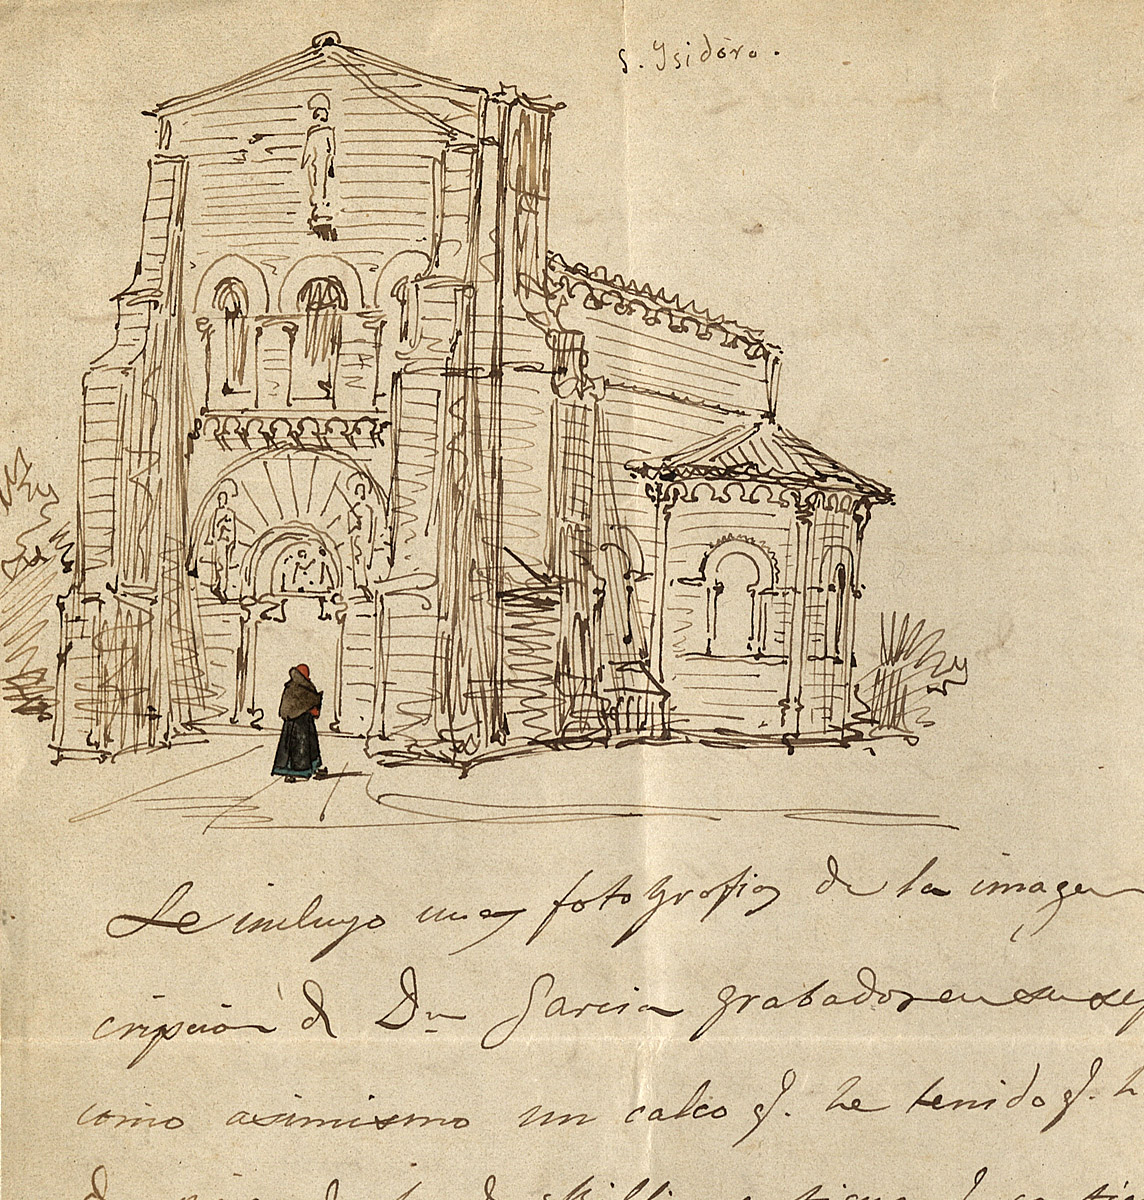 S. Ysidóro.
Le incluyo una fotografia de la imagen
cripcion d Dn Garcia grabados en su
como asimismo un calco q. he tenido q. h